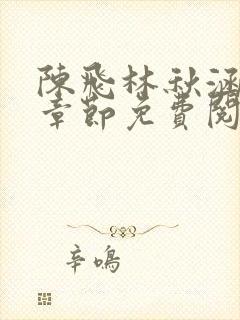 陳飛林秋涵
章節免費閱
辛鳴